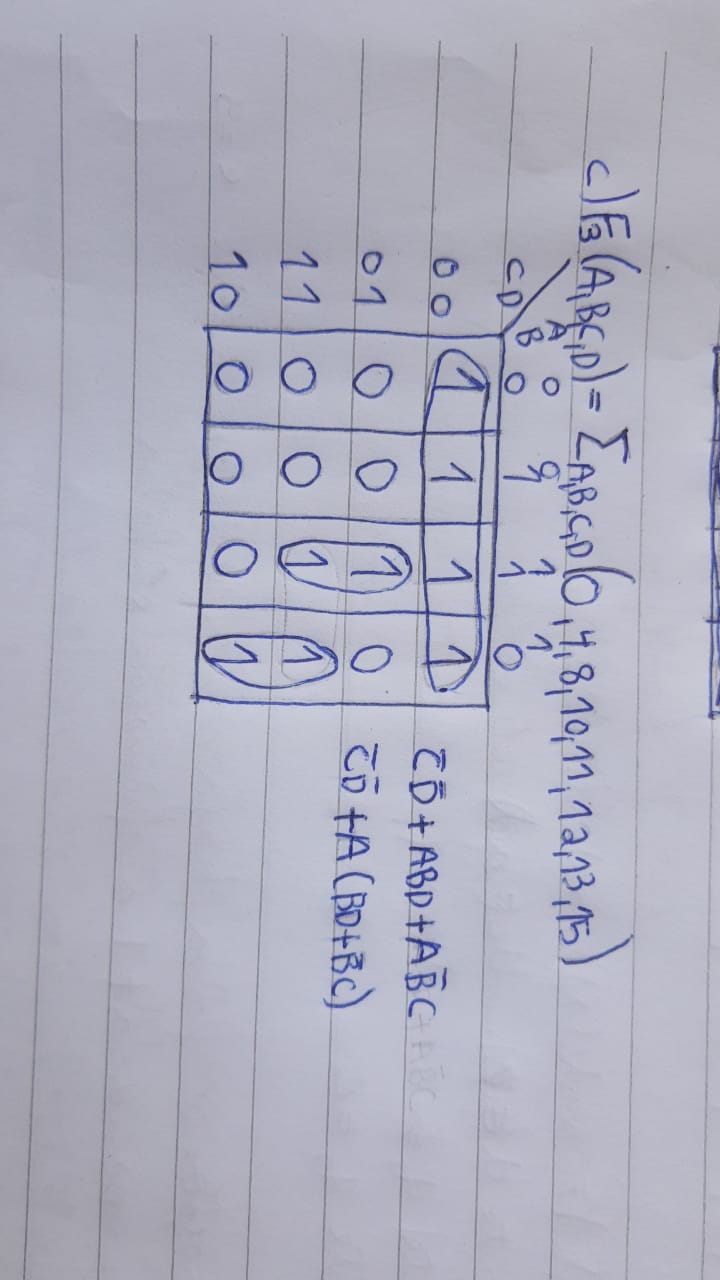 c) F3 (A,B,C,D) = ΣA,B,C,D (0,4,8,10,11,12,13,15)
A 0 0 1 1
CD B 0 1 1 0
00 1 1 1 1
01 0 0 1 0
11 0 0 1 1
10 0 0 0 1
C̄D̄ + ABD + AB̄C
C̄D̄ + A(BD+B̄C)